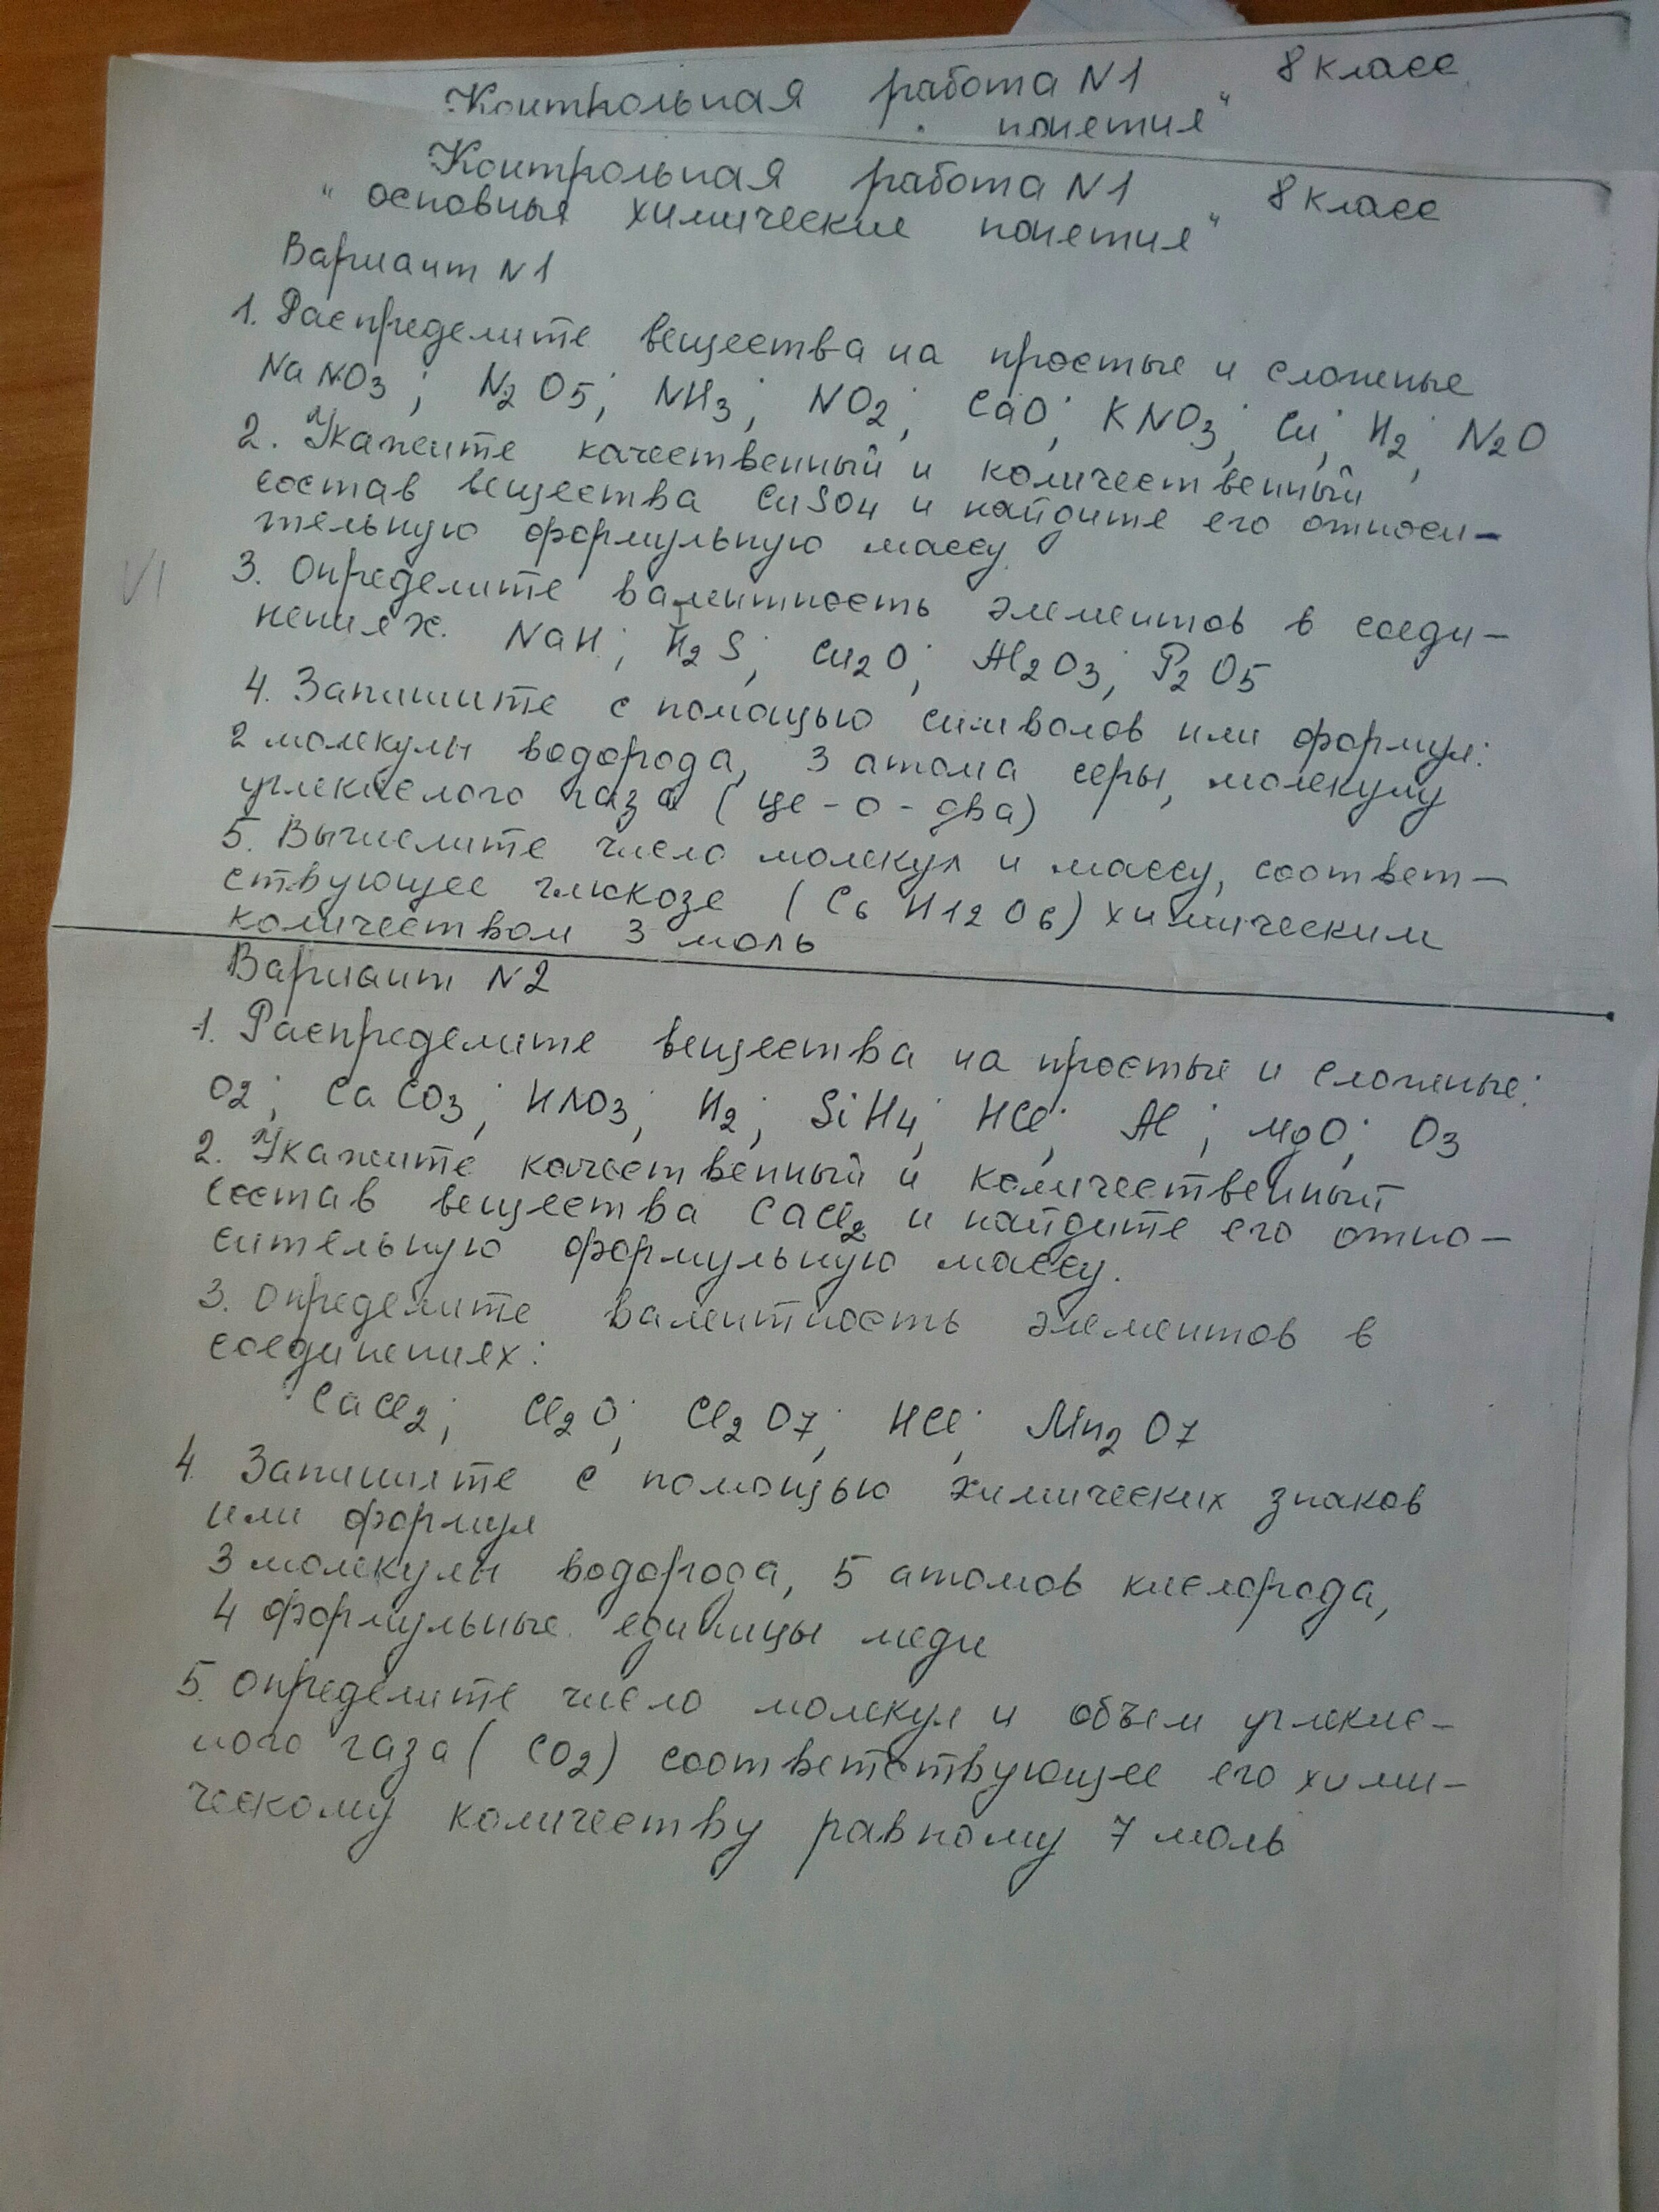 Контрольная работа N1 8 класс
понетия"
Контрольная работа N1 8 класс
"основныя химические понетия"
Вариант N1
1. Распределите вещества на простые и сложные
NaNO3; N2O5; NH3; NO2; CaO; KNO3; Cu; H2; N2O
2. Укажите качественный и количественный
состав вещества CuSO4 и найдите его относи-
тельную формульную массу
VI
3. Определите валентность элементов в соеди-
нениях. NaH; H2S; Cu2O; Al2O3; P2O5
I
4. Запишите с помощью символов или формул:
2 молекулы водорода, 3 атома серы, молекулу
углекислого газа (це-о-два)
5. Вычислите число молекул и массу, соответ-
ствующее глюкозе (C6H12O6) химическим
количеством 3 моль
Вариант N2
1. Распределите вещества на простые и сложные:
O2; CaCO3; HNO3; H2; SiH4; HCl; Al; MgO; O3
2. Укажите качественный и количественный
состав вещества CaCl2 и найдите его отно-
сительную формульную массу.
3. Определите валентность элементов в
соединениях:
CaCl2; Cl2O; Cl2O7; HCl; Mn2O7
4. Запишите с помощью химических знаков
или формул
3 молекулы водорода, 5 атомов кислорода,
4 формульные единицы меди
5. Определите число молекул и объем углекис-
лого газа (CO2) соответствующее его хими-
ческому количеству равному 7 моль